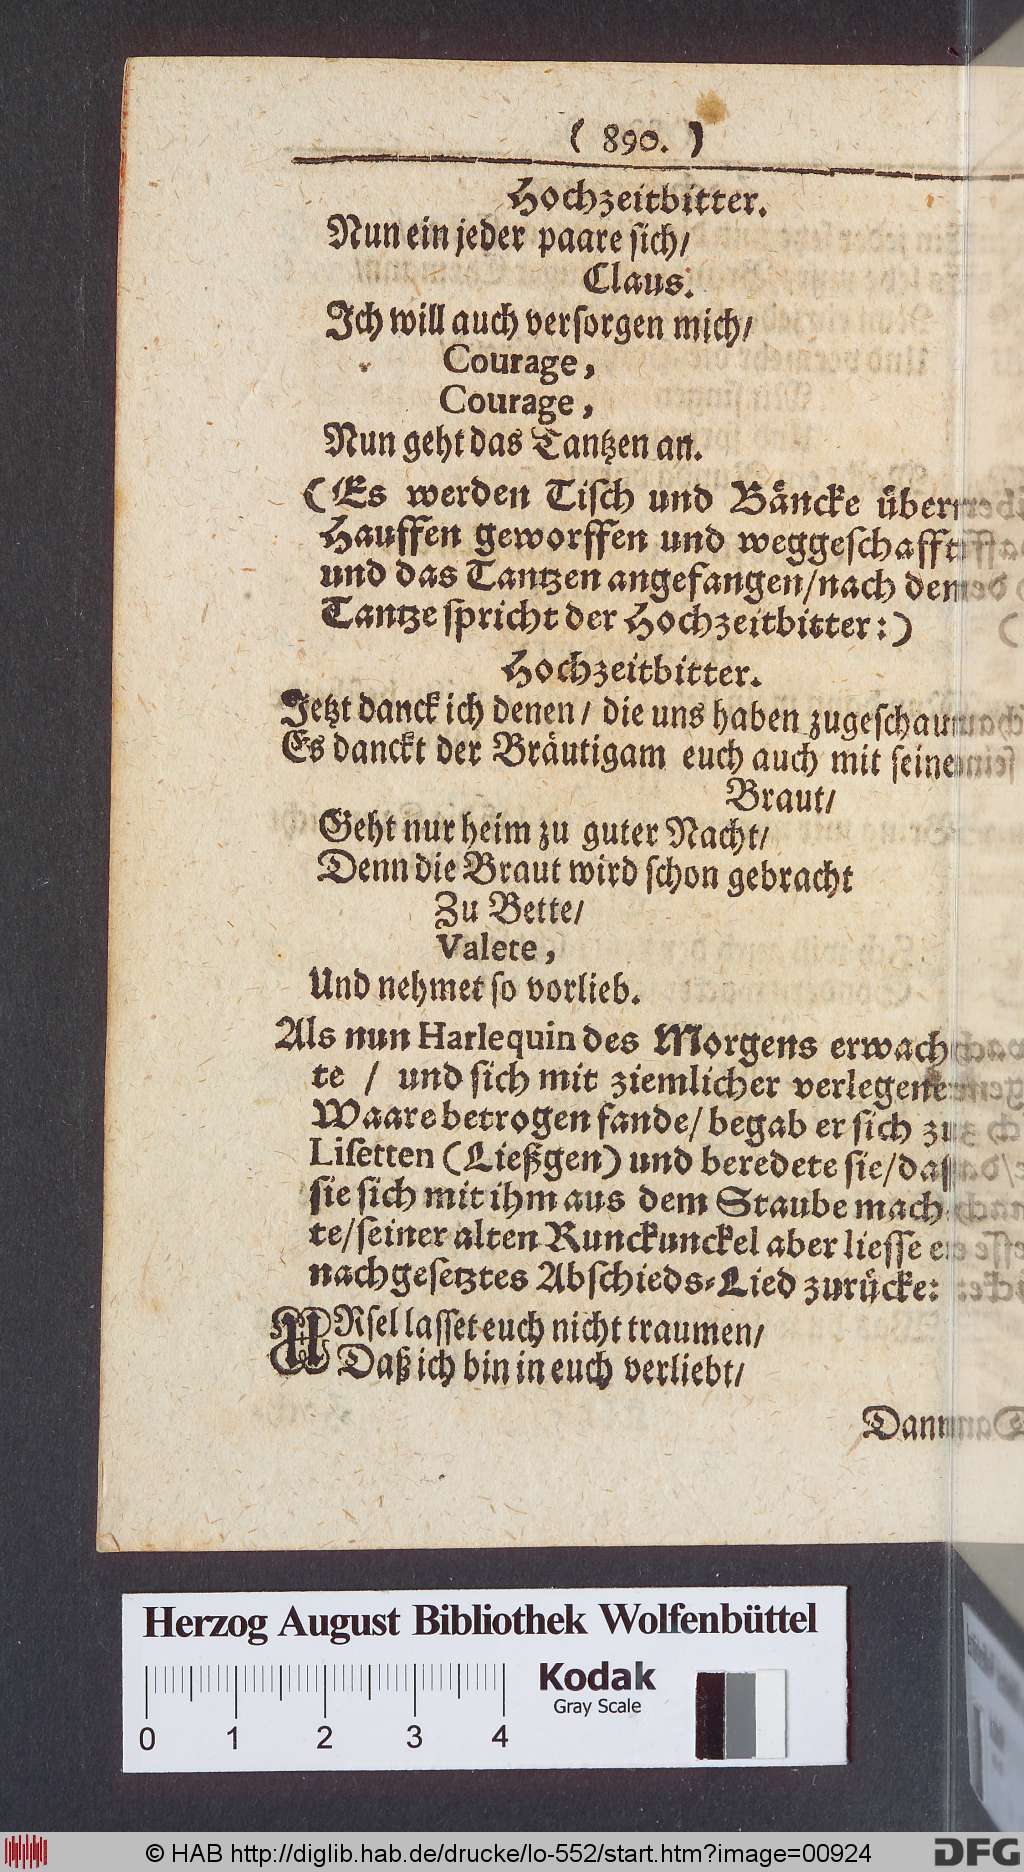 ( 890. )
Hochzeitbitter.
Nun ein jeder paare sich/
Claus.
Ich will auch versorgen mich/
Courage,
Courage,
Nun geht das Tantzen an.
(Es werden Tisch und Bäncke übern
Hauffen geworffen und weggeschafft
und das Tantzen angefangen/nach dem
Tantze spricht der Hochzeitbitter:)
Hochzeitbitter.
Jetzt danck ich denen/ die uns haben zugeschaut
Es danckt der Bräutigam euch auch mit seiner
Braut/
Geht nur heim zu guter Nacht/
Denn die Braut wird schon gebracht
Zu Bette/
Valete,
Und nehmet so vorlieb.
Als nun Harlequin des Morgens erwach-
te / und sich mit ziemlicher verlegener
Waare betrogen fande/ begab er sich zu
Lisetten (Ließgen) und beredete sie/daß
sie sich mit ihm aus dem Staube mach-
te/seiner alten Runckunckel aber liesse er
nachgesetztes Abschieds-Lied zurücke:
URsel lasset euch nicht traumen/
Daß ich bin in euch verliebt/
Dann
Herzog August Bibliothek Wolfenbüttel
Kodak
Gray Scale
0 1 2 3 4
© HAB http://diglib.hab.de/drucke/lo-552/start.htm?image=00924
DFG